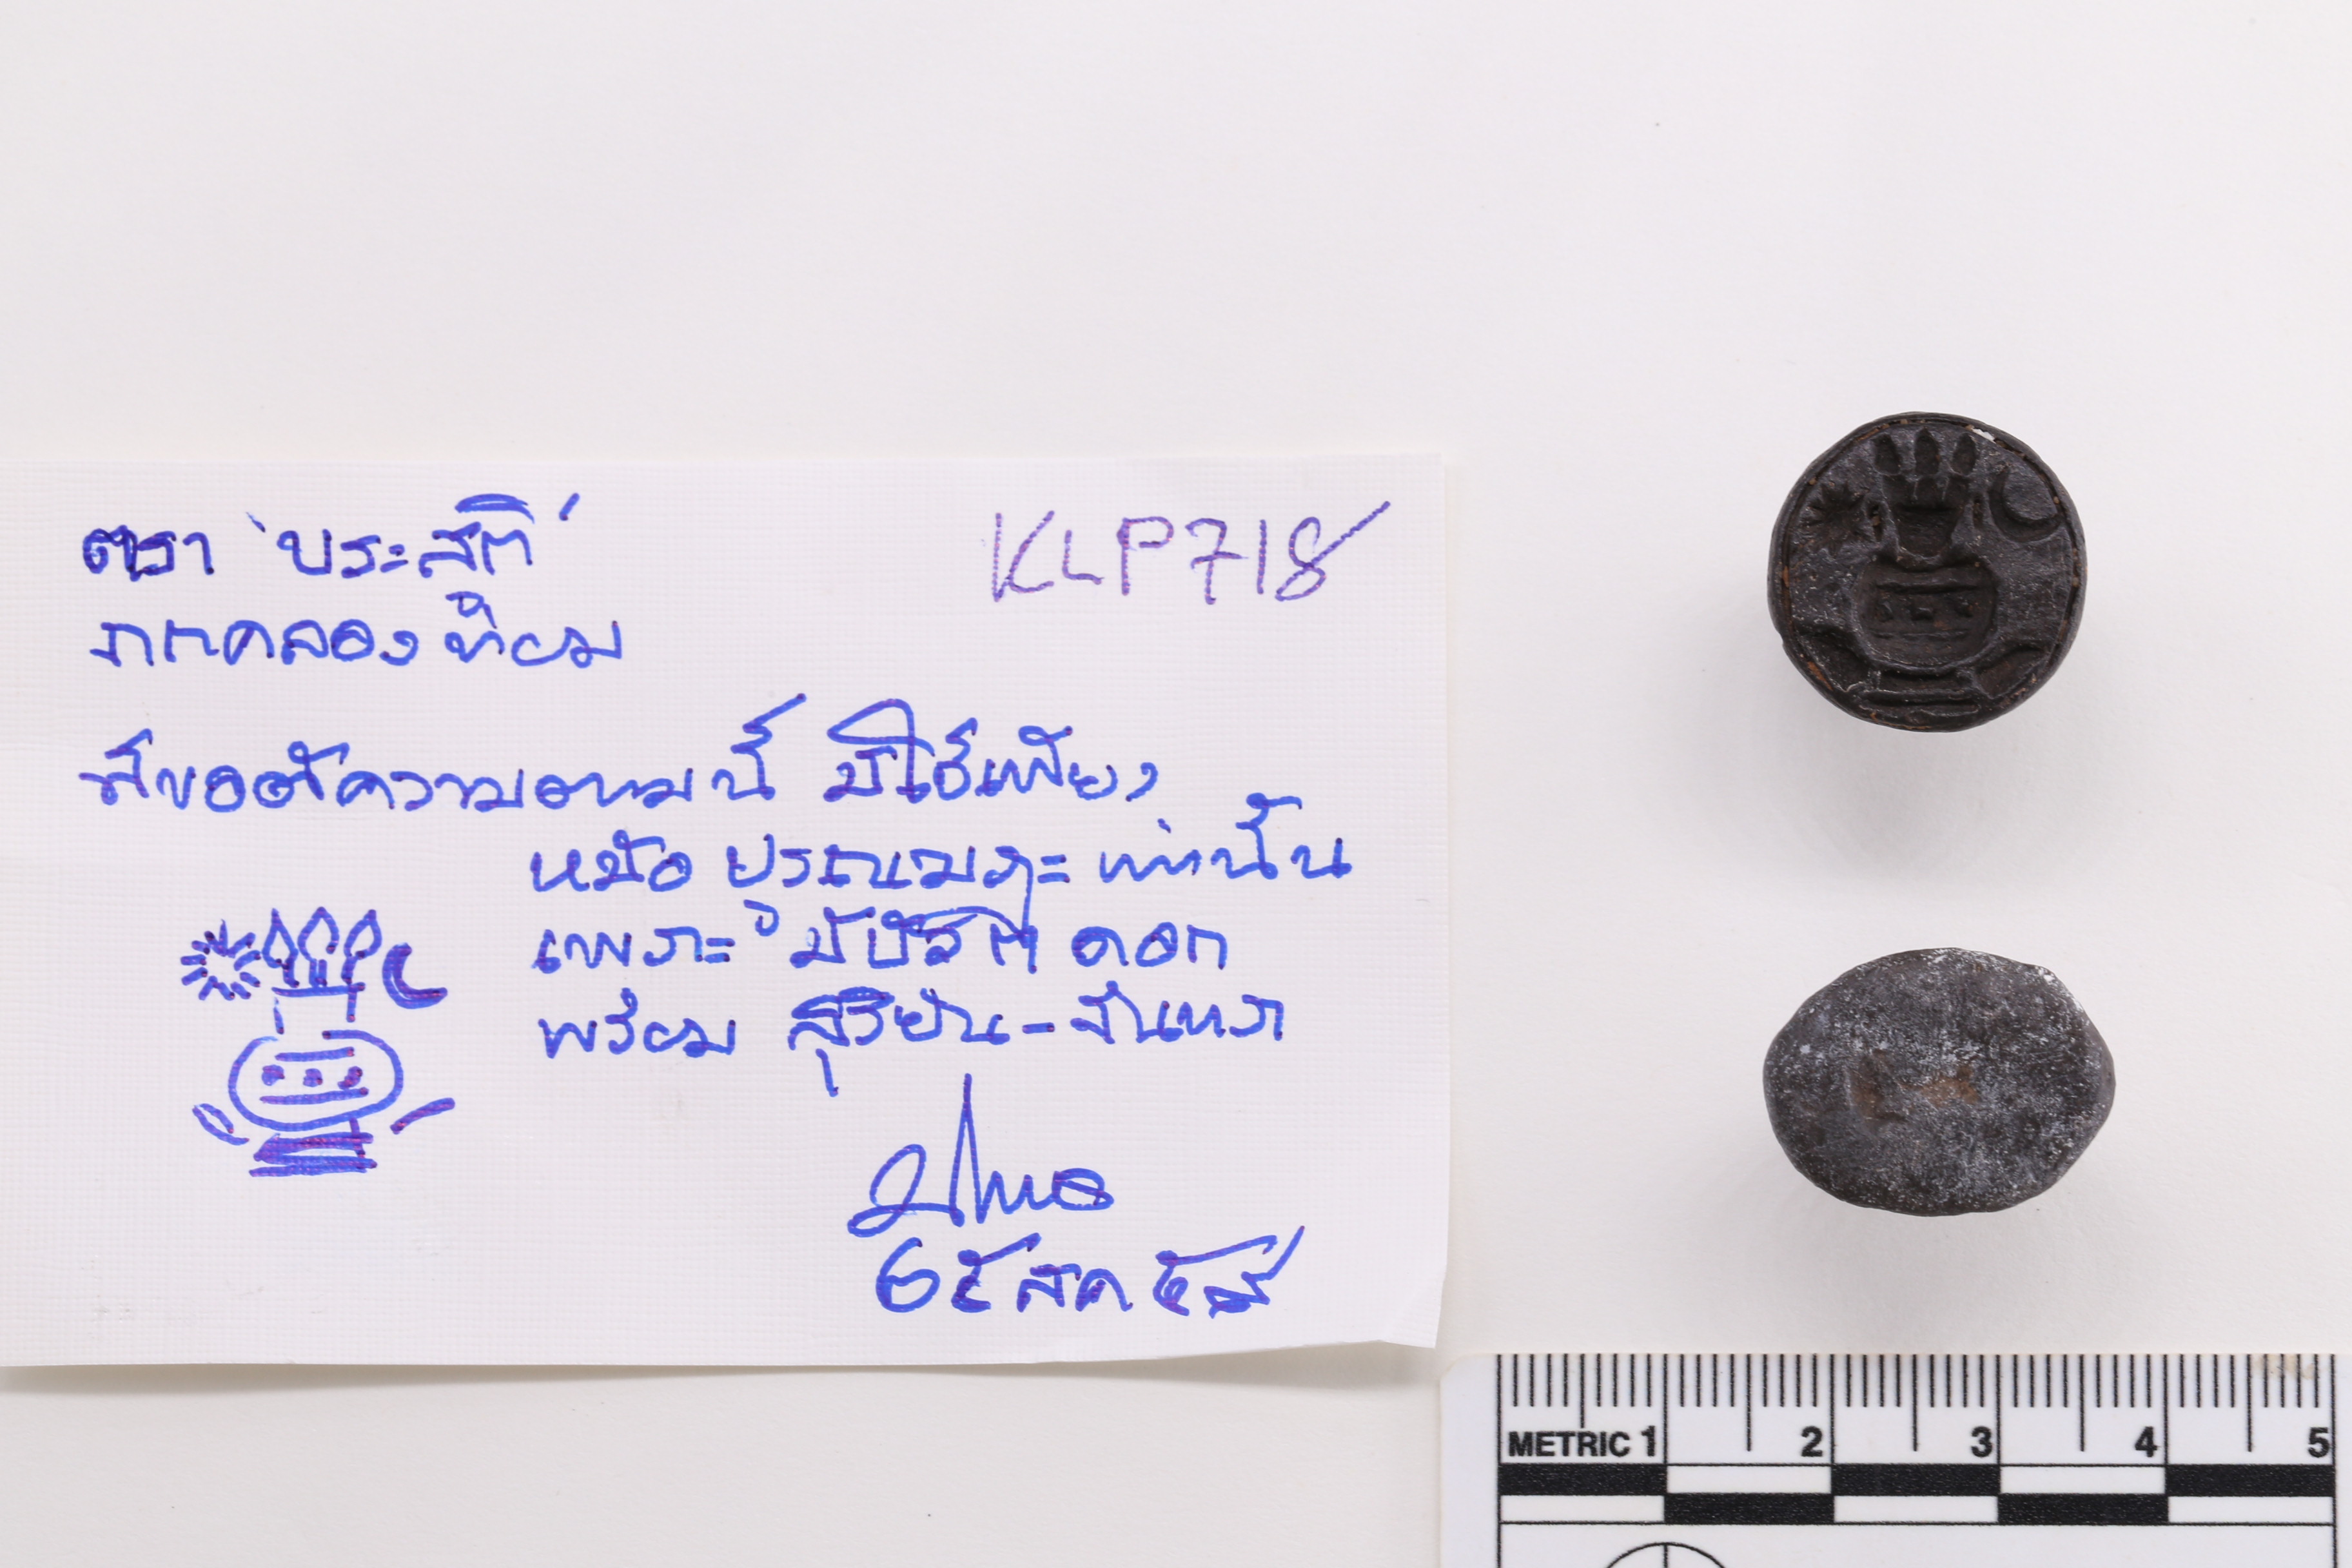 ตรา 'ประสิติ'
ภาคคลองท่อม
KLP718
ที่ขอตีความตามนี้ มิใช่เพียง
หม้อ ปูรณะฆฏะ เท่านั้น
เพราะ มี ดอก
พร้อม สุริยัน-จันทรา
๒๕ สค ๕๘
METRIC 1 2 3 4 5